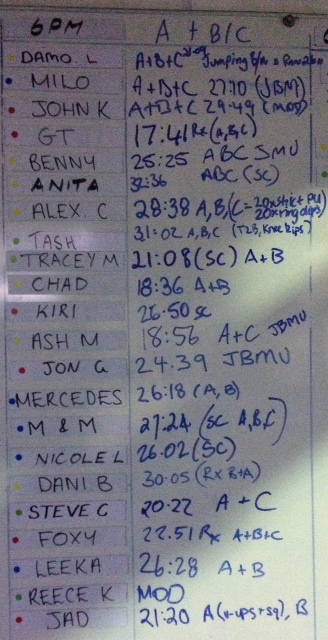 6PM A + B/C
DAMO. L A+B+C Jumping
MILO A+B+C 27:10 (JBM)
JOHN K A+B+C 29:49 (MOD)
GT 17:41 Rx (A,B,C)
BENNY 25:25 ABC SMU
ANITA 32:36 ABC (SC)
ALEX. C 28:38 A,B,(C=
TASH 31:02 A,B,C (T2B, Knee Raps)
TRACEY M 21:08 (SC) A+B
CHAD 18:36 A+B
KIRI 26.50 SC
ASH M 18:56 A+C JBMU
JON G 24.39 JBMU
MERCEDES 26:18 (A,B)
M & M 27:24 (SC A,B,C)
NICOLE L 26.02 (SC)
DANI B 30.05 (RX B+A)
STEVE G 20:22 A + C
FOXY 22.51 Rx A+B+C
LEEKA 26:28 A+B
REECE K MOD
JAD 21:20 A(k-ups+sq), B